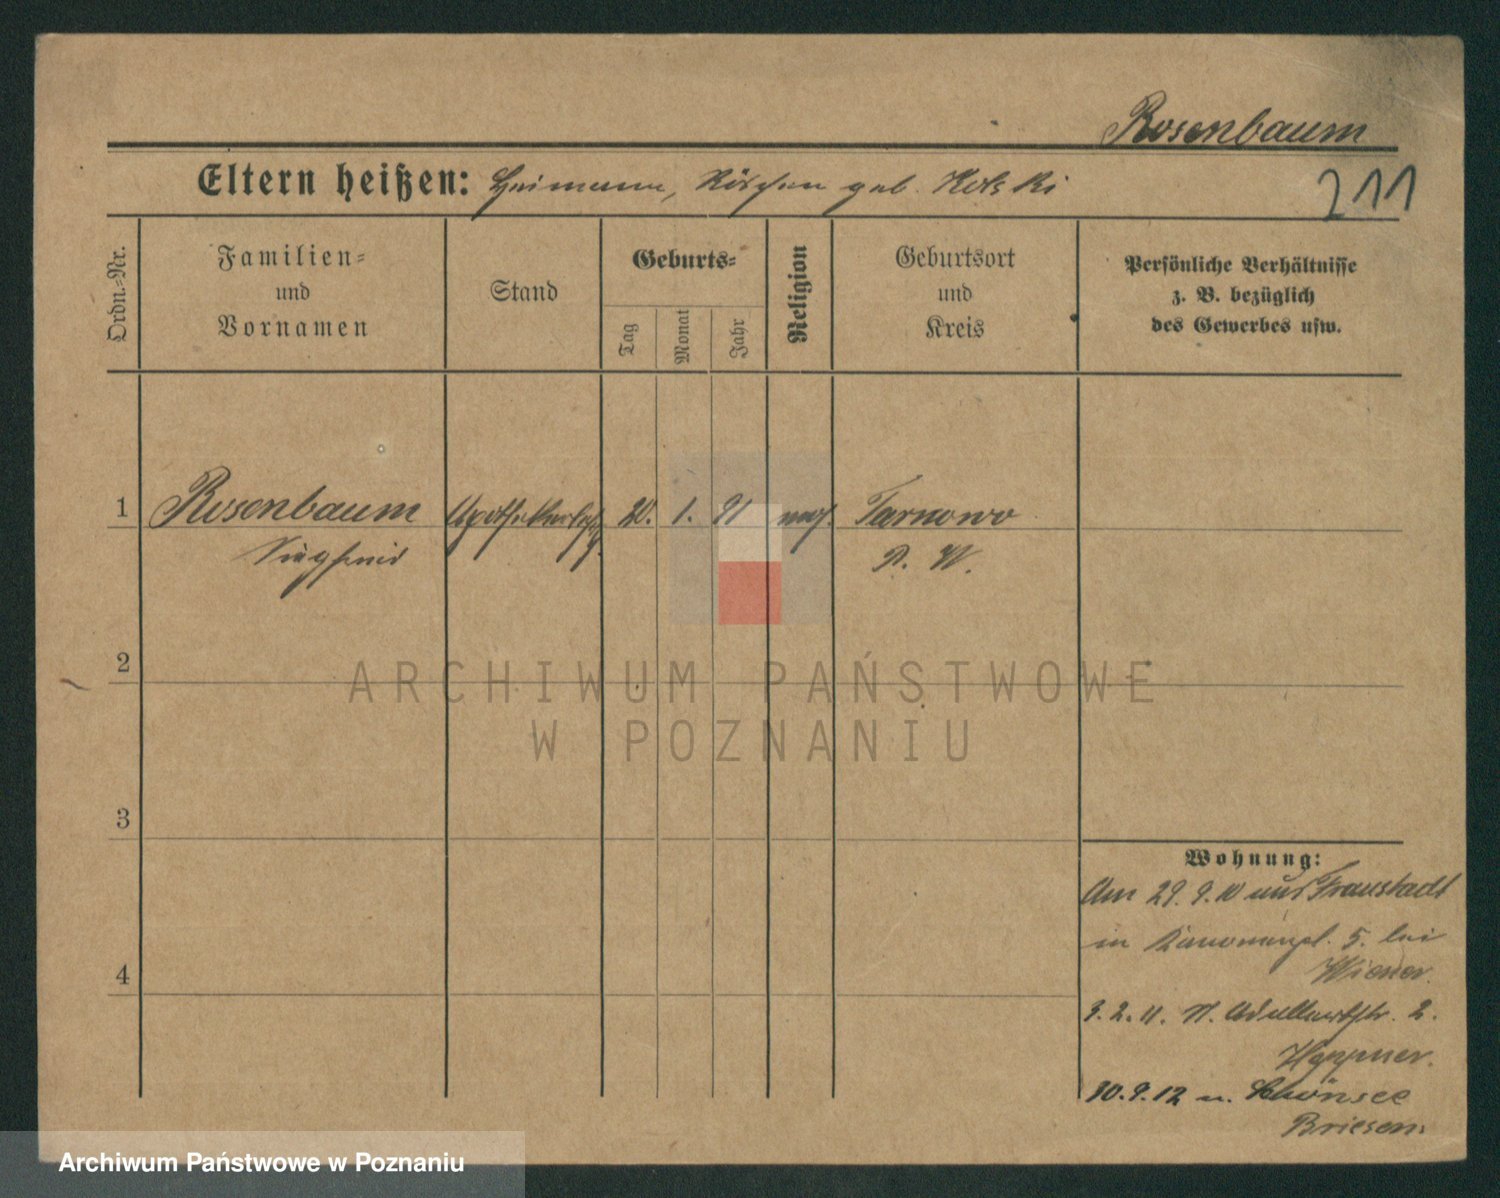 Rosenbaum
Eltern heißen: Heimann, Röschen geb. Kolski
211
Ordn.-Nr.
Familien-
und
Vornamen
Stand
Geburts-
Tag
Monat
Jahr
Religion
Geburtsort
und
Kreis
Persönliche Verhältnisse
z. B. bezüglich
des Gewerbes usw.
1
Rosenbaum
Siegfried
20. 1. 91
mos.
Tarnowo
P. W.
2
ARCHIWUM PAŃSTWOWE
W POZNANIU
3
Wohnung:
Am 29. 9. 10 aus Fraustadt
in 5. bei
Wiener.
4
3. 2. 11. N. 2.
Heppner.
30. 9. 12 n. Schönsee
Briesen.
Archiwum Państwowe w Poznaniu